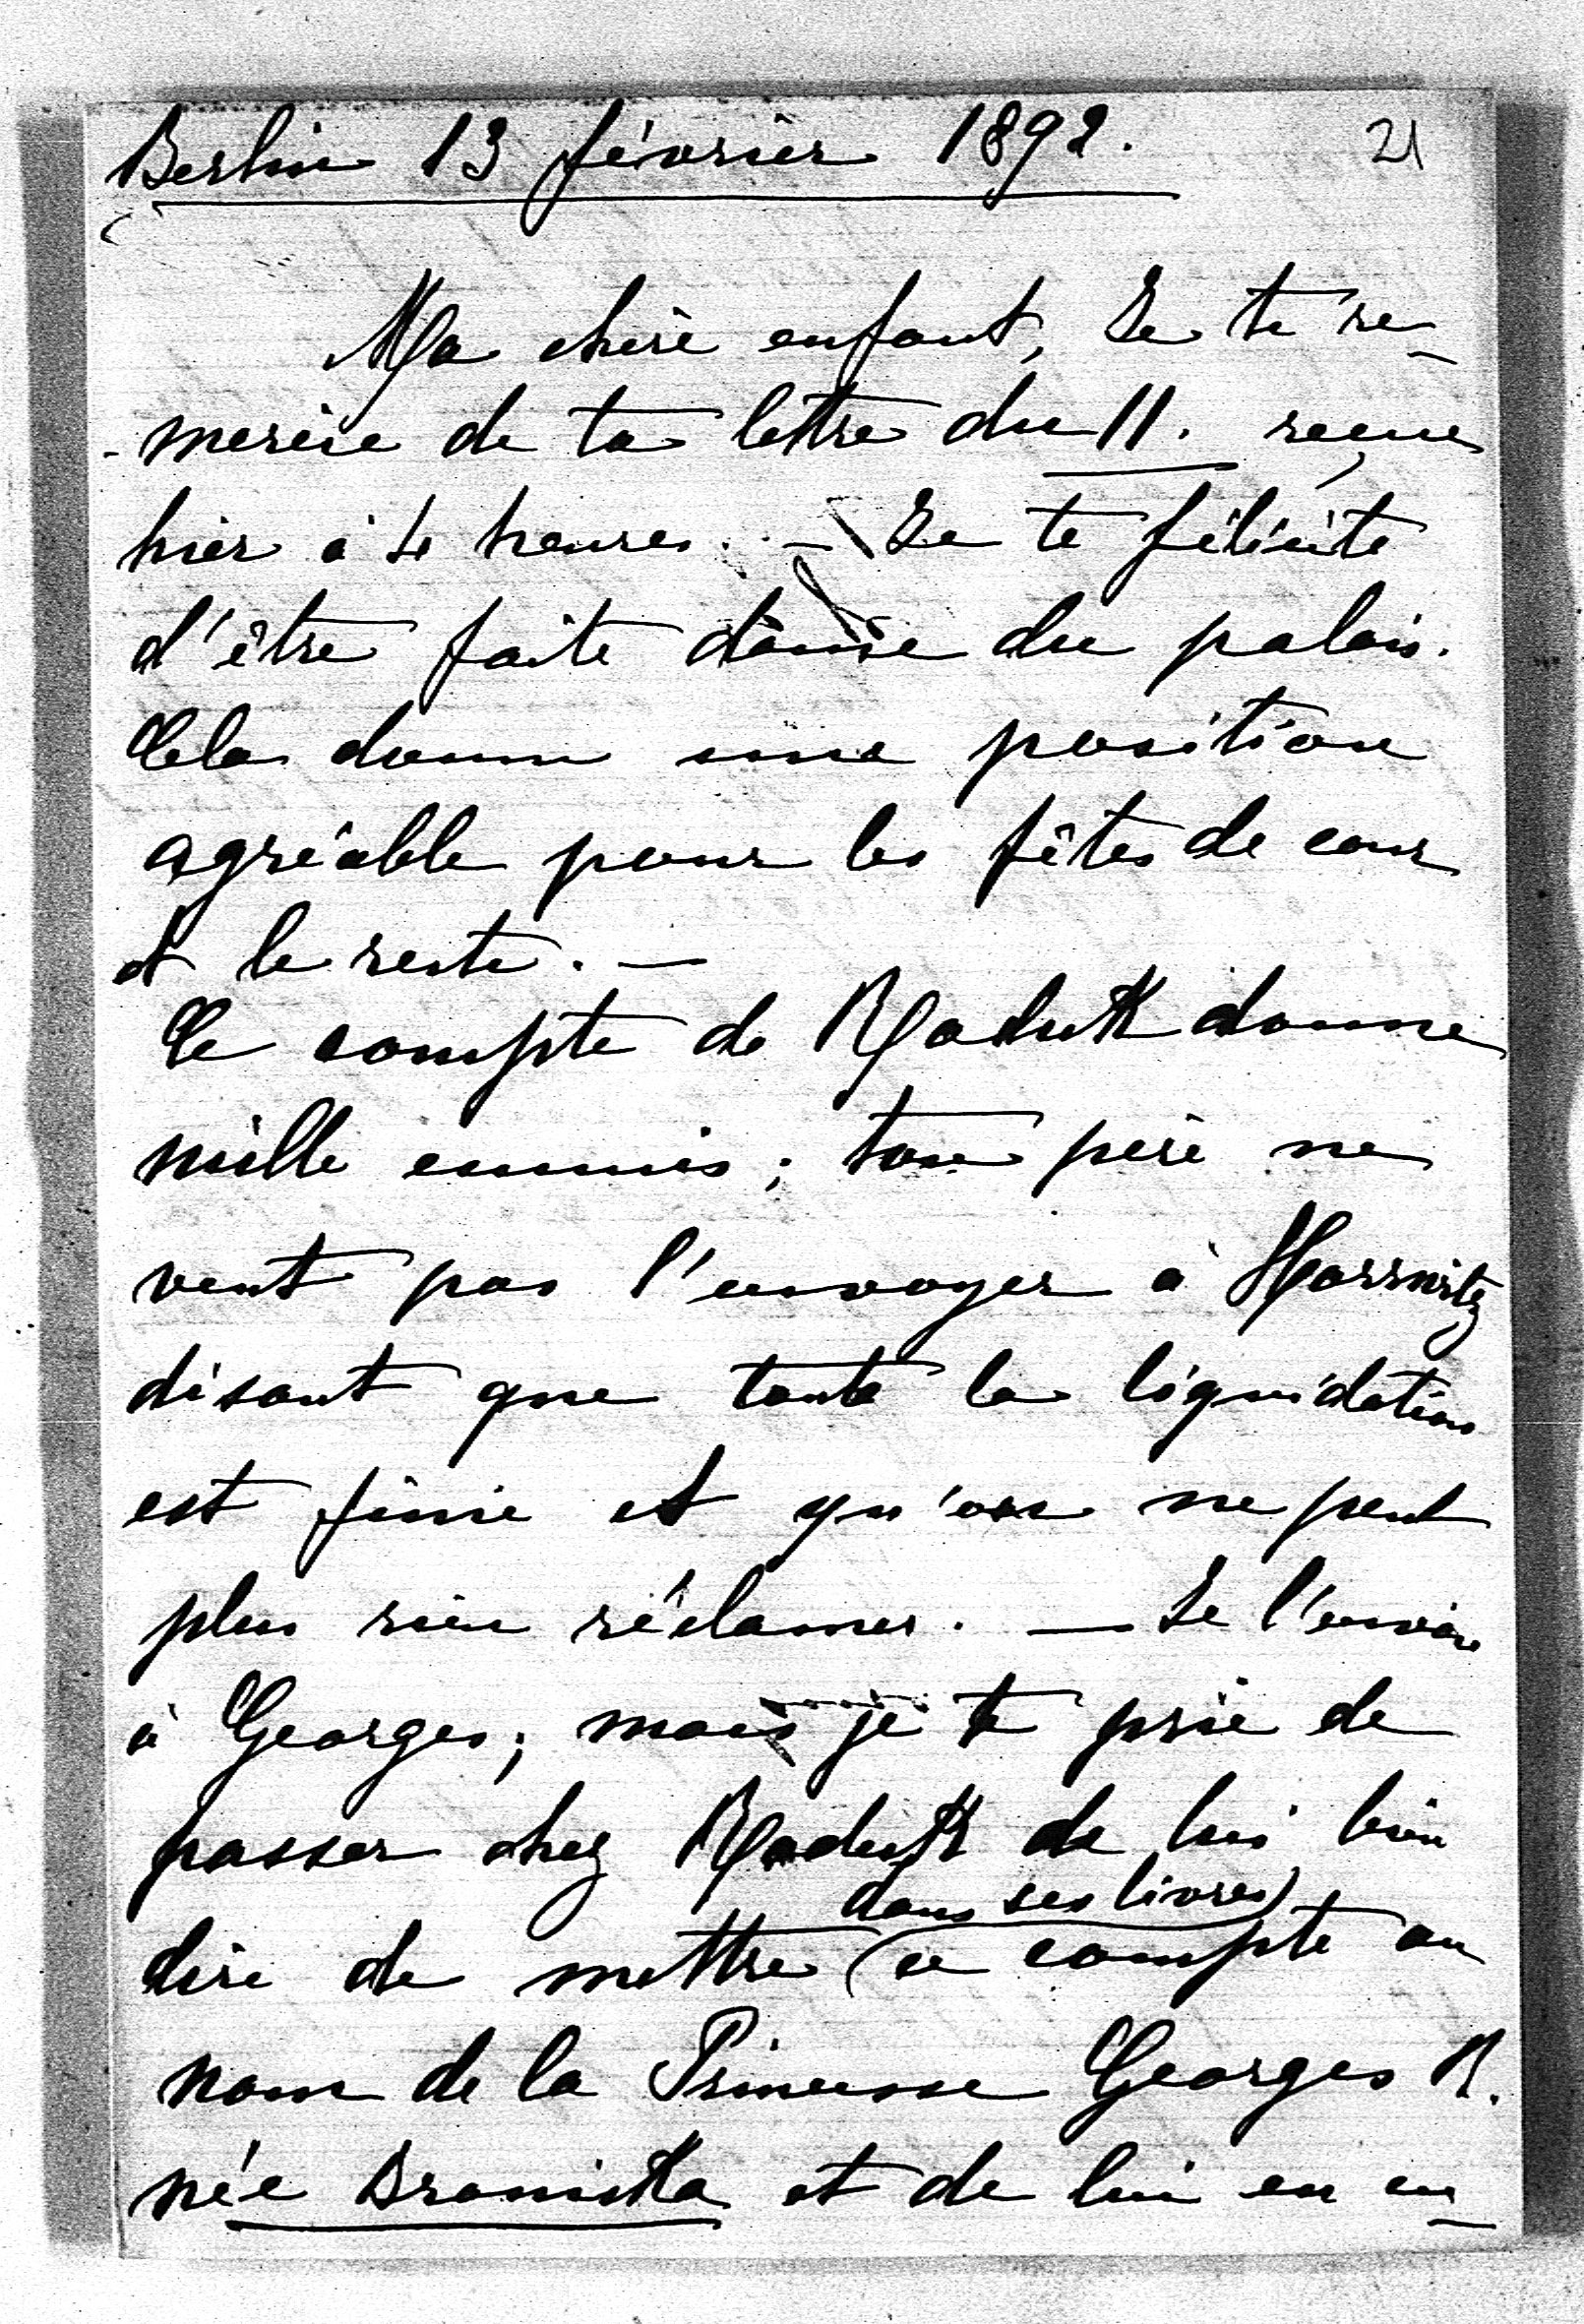 Berlin 13 février 1892. 21
Ma chère enfant, Je te re-
-mercie de ta lettre du 11. reçue
hier à 4 heures. — Je te félicite
d'être faite dame du palais.
Cela donne une position
agréable pour les fêtes de cour
et le reste. —
Le compte de donne
mille ennuis; ton père ne
veut pas l'envoyer à Horrwitz
disant que toute la liquidation
est finie et qu'on ne peut
plus rien réclamer. — Je l'envoie
à Georges; mais je te prie de
passer chez de lui bien
dans ses livres)
dire de mettre (ce compte au
nom de la Princesse Georges R.
née et de lui en en-